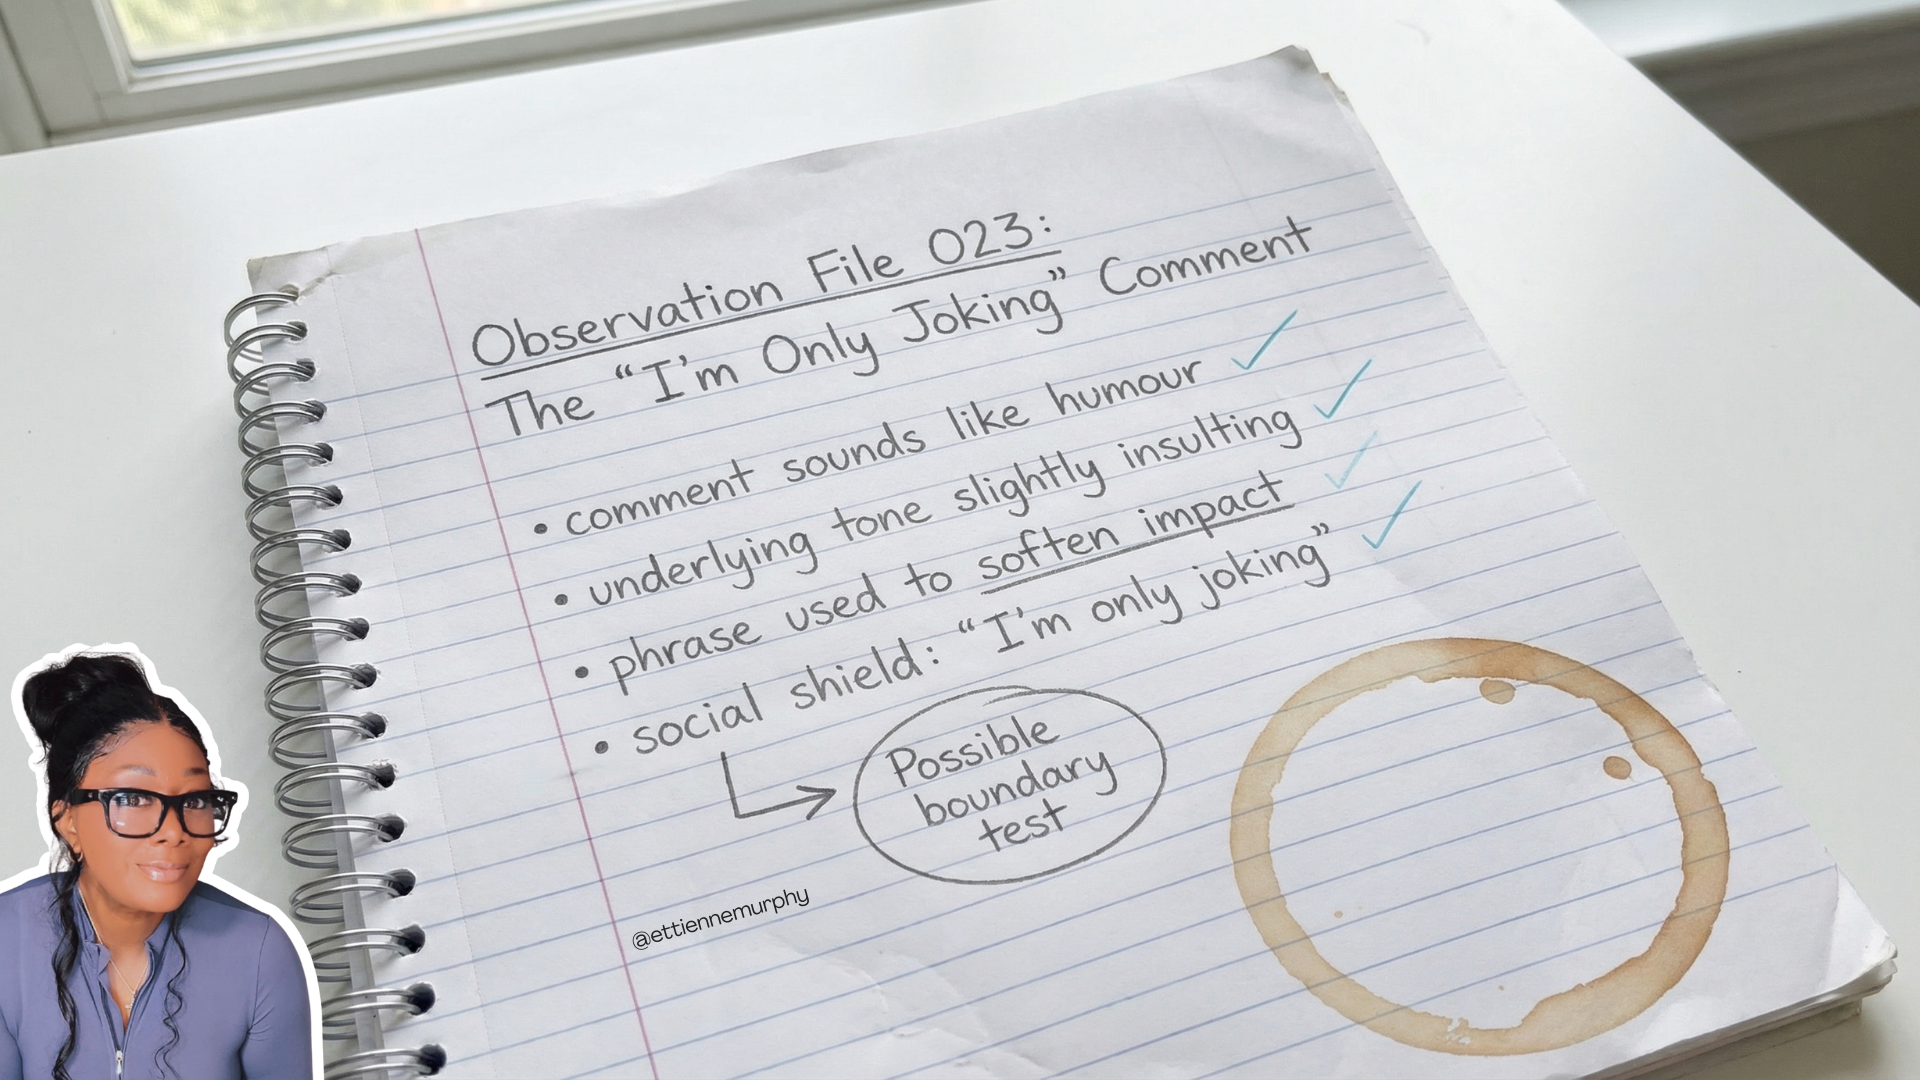 Observation File 023:
The “I’m Only Joking” Comment
• comment sounds like humour ✓
• underlying tone slightly insulting ✓
• phrase used to soften impact ✓
• social shield: “I’m only joking” ✓
Possible
boundary
test
@ettiennemurphy